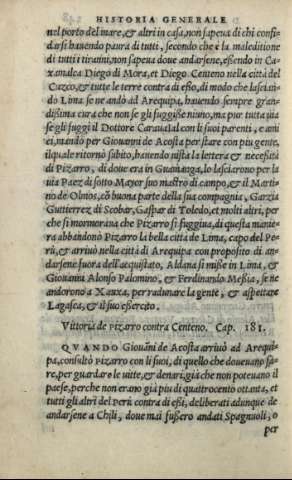 HISTORIA GENERALE
nel porto del mare, & altri in casa, non sapeua di chi confi-
darsi hauendo paura di tutti, secondo che è la maleditione
di tutti i tiranni, non sapeua doue andarsene, essendo in Ca-
xamalca Diego di Mora, et Diego Centeno nella città del
Cuzco, & tutte le terre contra di esso, di modo che lascian-
do Lima se ne andò ad Arequipa, hauendo sempre gran-
dissima cura che non se gli fuggisse niuno, ma pur tutta uia
se gli fuggì il Dottore Carauaial con li suoi parenti, e ami
ci, mandò per Giouanni de Acosta per stare con piu gente,
il quale ritornò subito, hauendo uista la lettera & necessità
di Pizarro, di doue era in Guamanga, lo lasciarono per la
uia Paez di sotto Mayor suo mastro di campo, & il Marti-
no de Olmos, cō buona parte della sua compagnia, Garzia
Guttierrez di Scobar, Gaspar di Toledo, et molti altri, per
che si mormoraua che Pizarro si fuggiua, di questa manie
ra abbandonò Pizarro la bella città de Lima, capo del Pe-
rù, & arriuò nella città di Arequipa con proposito di an-
darsene fuora dell'acquistato, Aldana si misse in Lima, &
Giouanni Alonso Palomino, & Ferdinando Mesia, se ne
andorono à Xauxa, per radunare la gente, & aspettare
Lagasca, & il suo essercito.
Vittoria de Pizarro contra Centeno. Cap. 181.
QVANDO Giouāni de Acosta arriuò ad Arequi-
pa, consultò Pizarro con li suoi, di quello che doueuano fa-
re, per guardare le uitte, & denari, già che non poteuano il
paese, perche non erano già piu di quattrocento ottanta, et
tutti gli altri del Perù contra di essi, deliberati adunque de
andarsene a Chili, doue mai fussero andati Spagnuoli, o
per